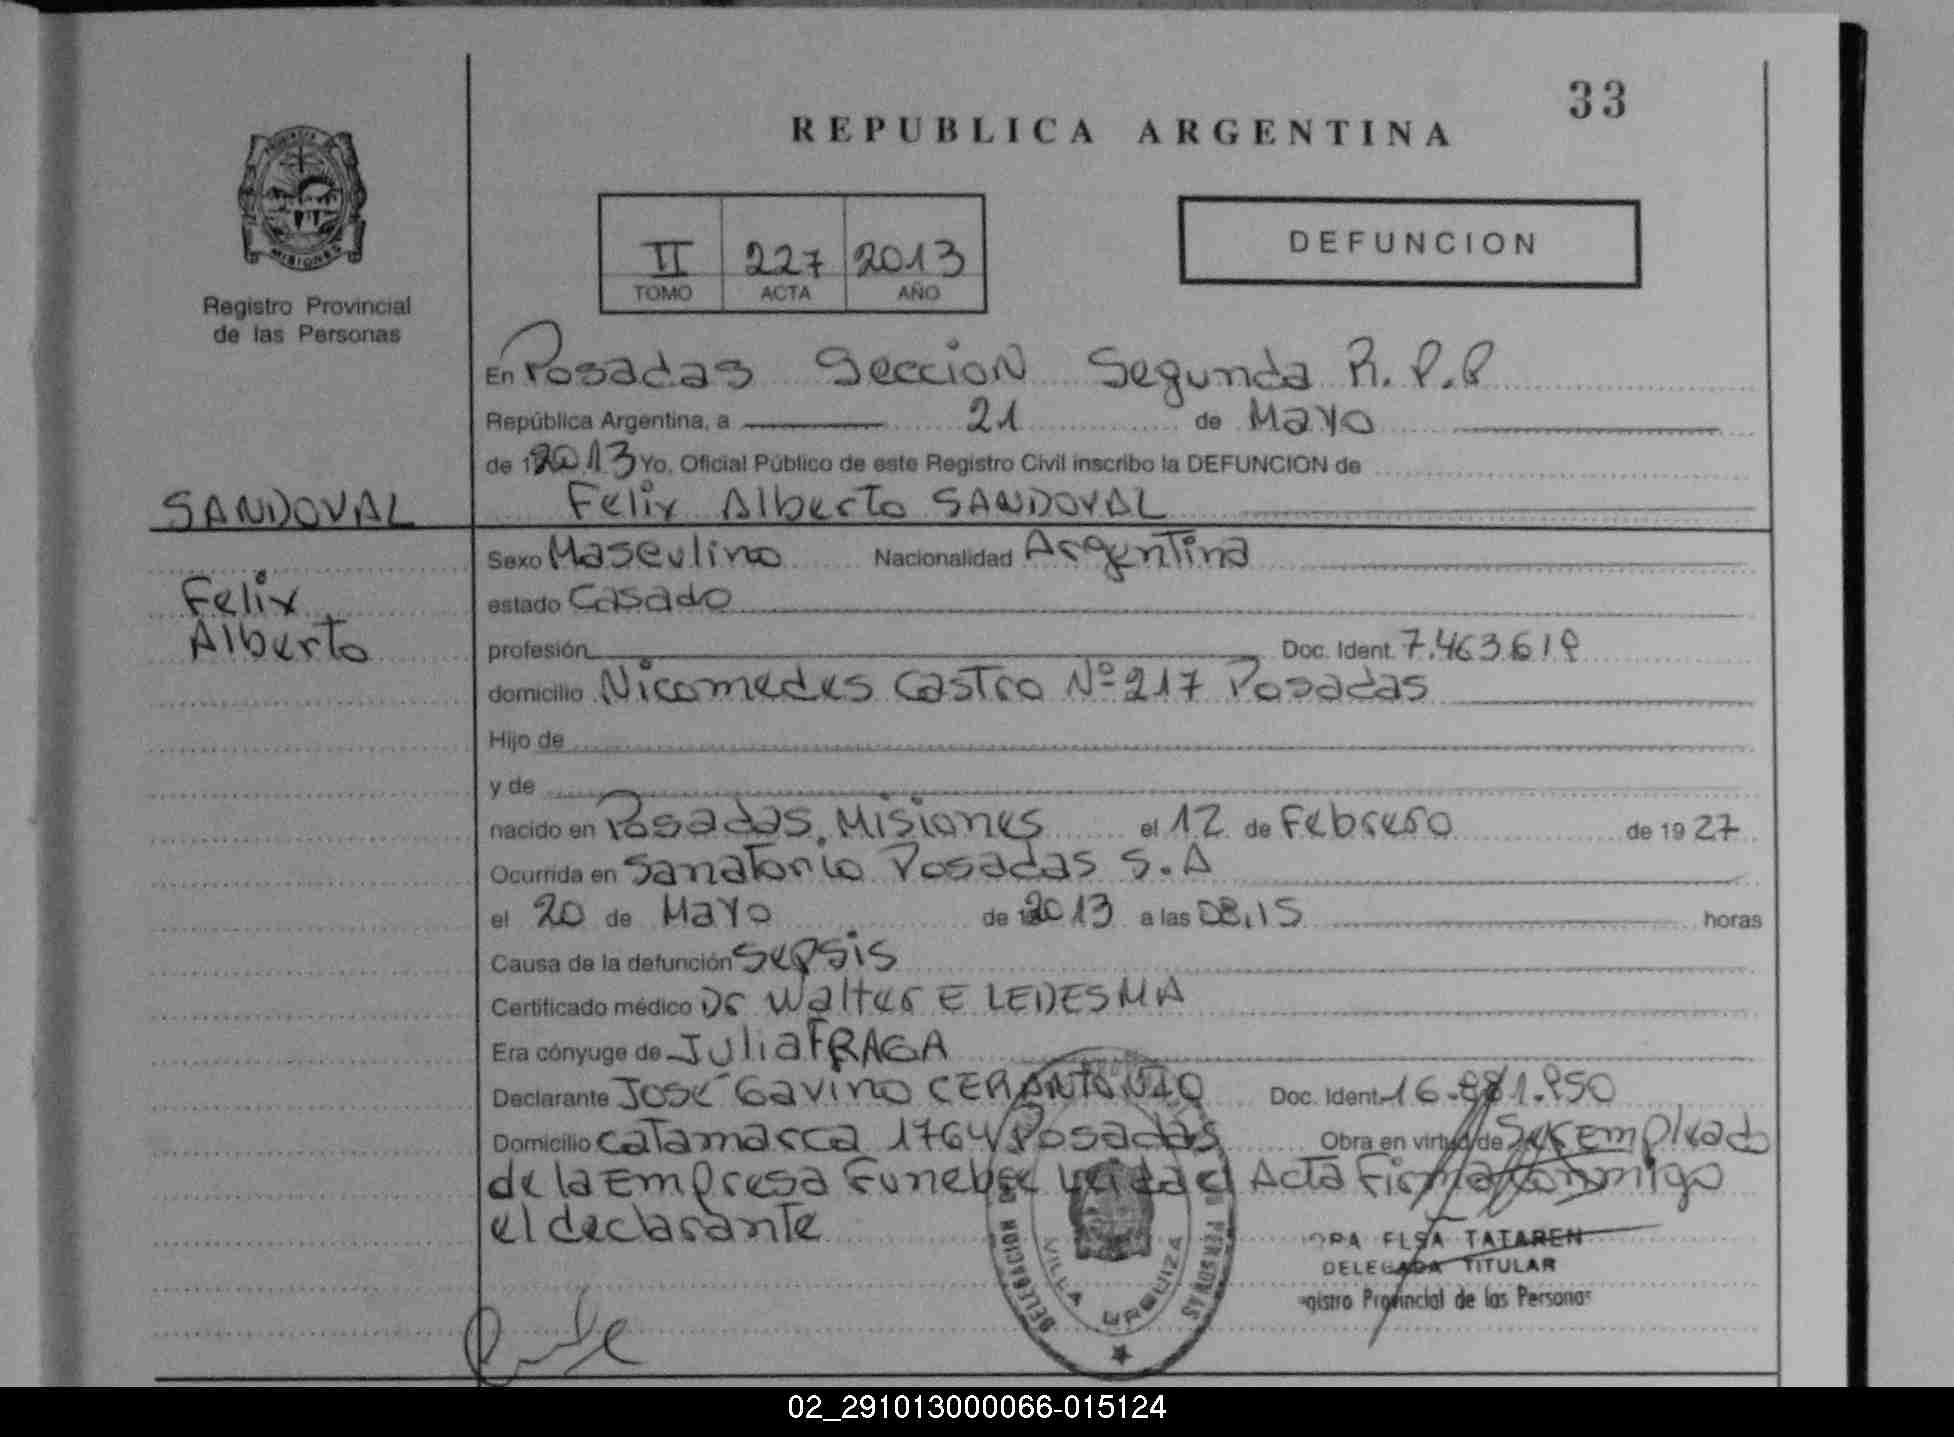 33
REPUBLICA ARGENTINA
MISIONES
Registro Provincial
de las Personas
II 227 2013
TOMO ACTA AÑO
DEFUNCION
En Posadas Seccion Segunda R.P.P
República Argentina, a 21 de Mayo
de 2013 Yo, Oficial Público de este Registro Civil inscribo la DEFUNCION de
SANDOVAL
Felix Alberto SANDOVAL
Felix
Alberto
Sexo Masculino Nacionalidad Argentina
estado Casado
profesión Doc. Ident. 7.463.619
domicilio Nicomedes Castro Nº 217 Posadas
Hijo de
y de
nacido en Posadas, Misiones el 12 de Febrero de 1927
Ocurrida en Sanatorio Posadas S.A
el 20 de Mayo de 2013 a las 08,15 horas
Causa de la defunción Sepsis
Certificado médico Dr Walter E LEDESMA
Era cónyuge de Julia FRAGA
Declarante José Gavino CERANTONIO Doc. Ident. 16..950
Domicilio Catamarca 1764 Posadas Obra en virtud de Ser Empleado
de la Empresa Funebre Leida el Acta Firma Conmigo
el declarante
DELEGACION PERSONAS
VILLA URQUIZA
ELSA TATAREN
DELEGADA TITULAR
gistro Provincial de las Personas
02_291013000066-015124